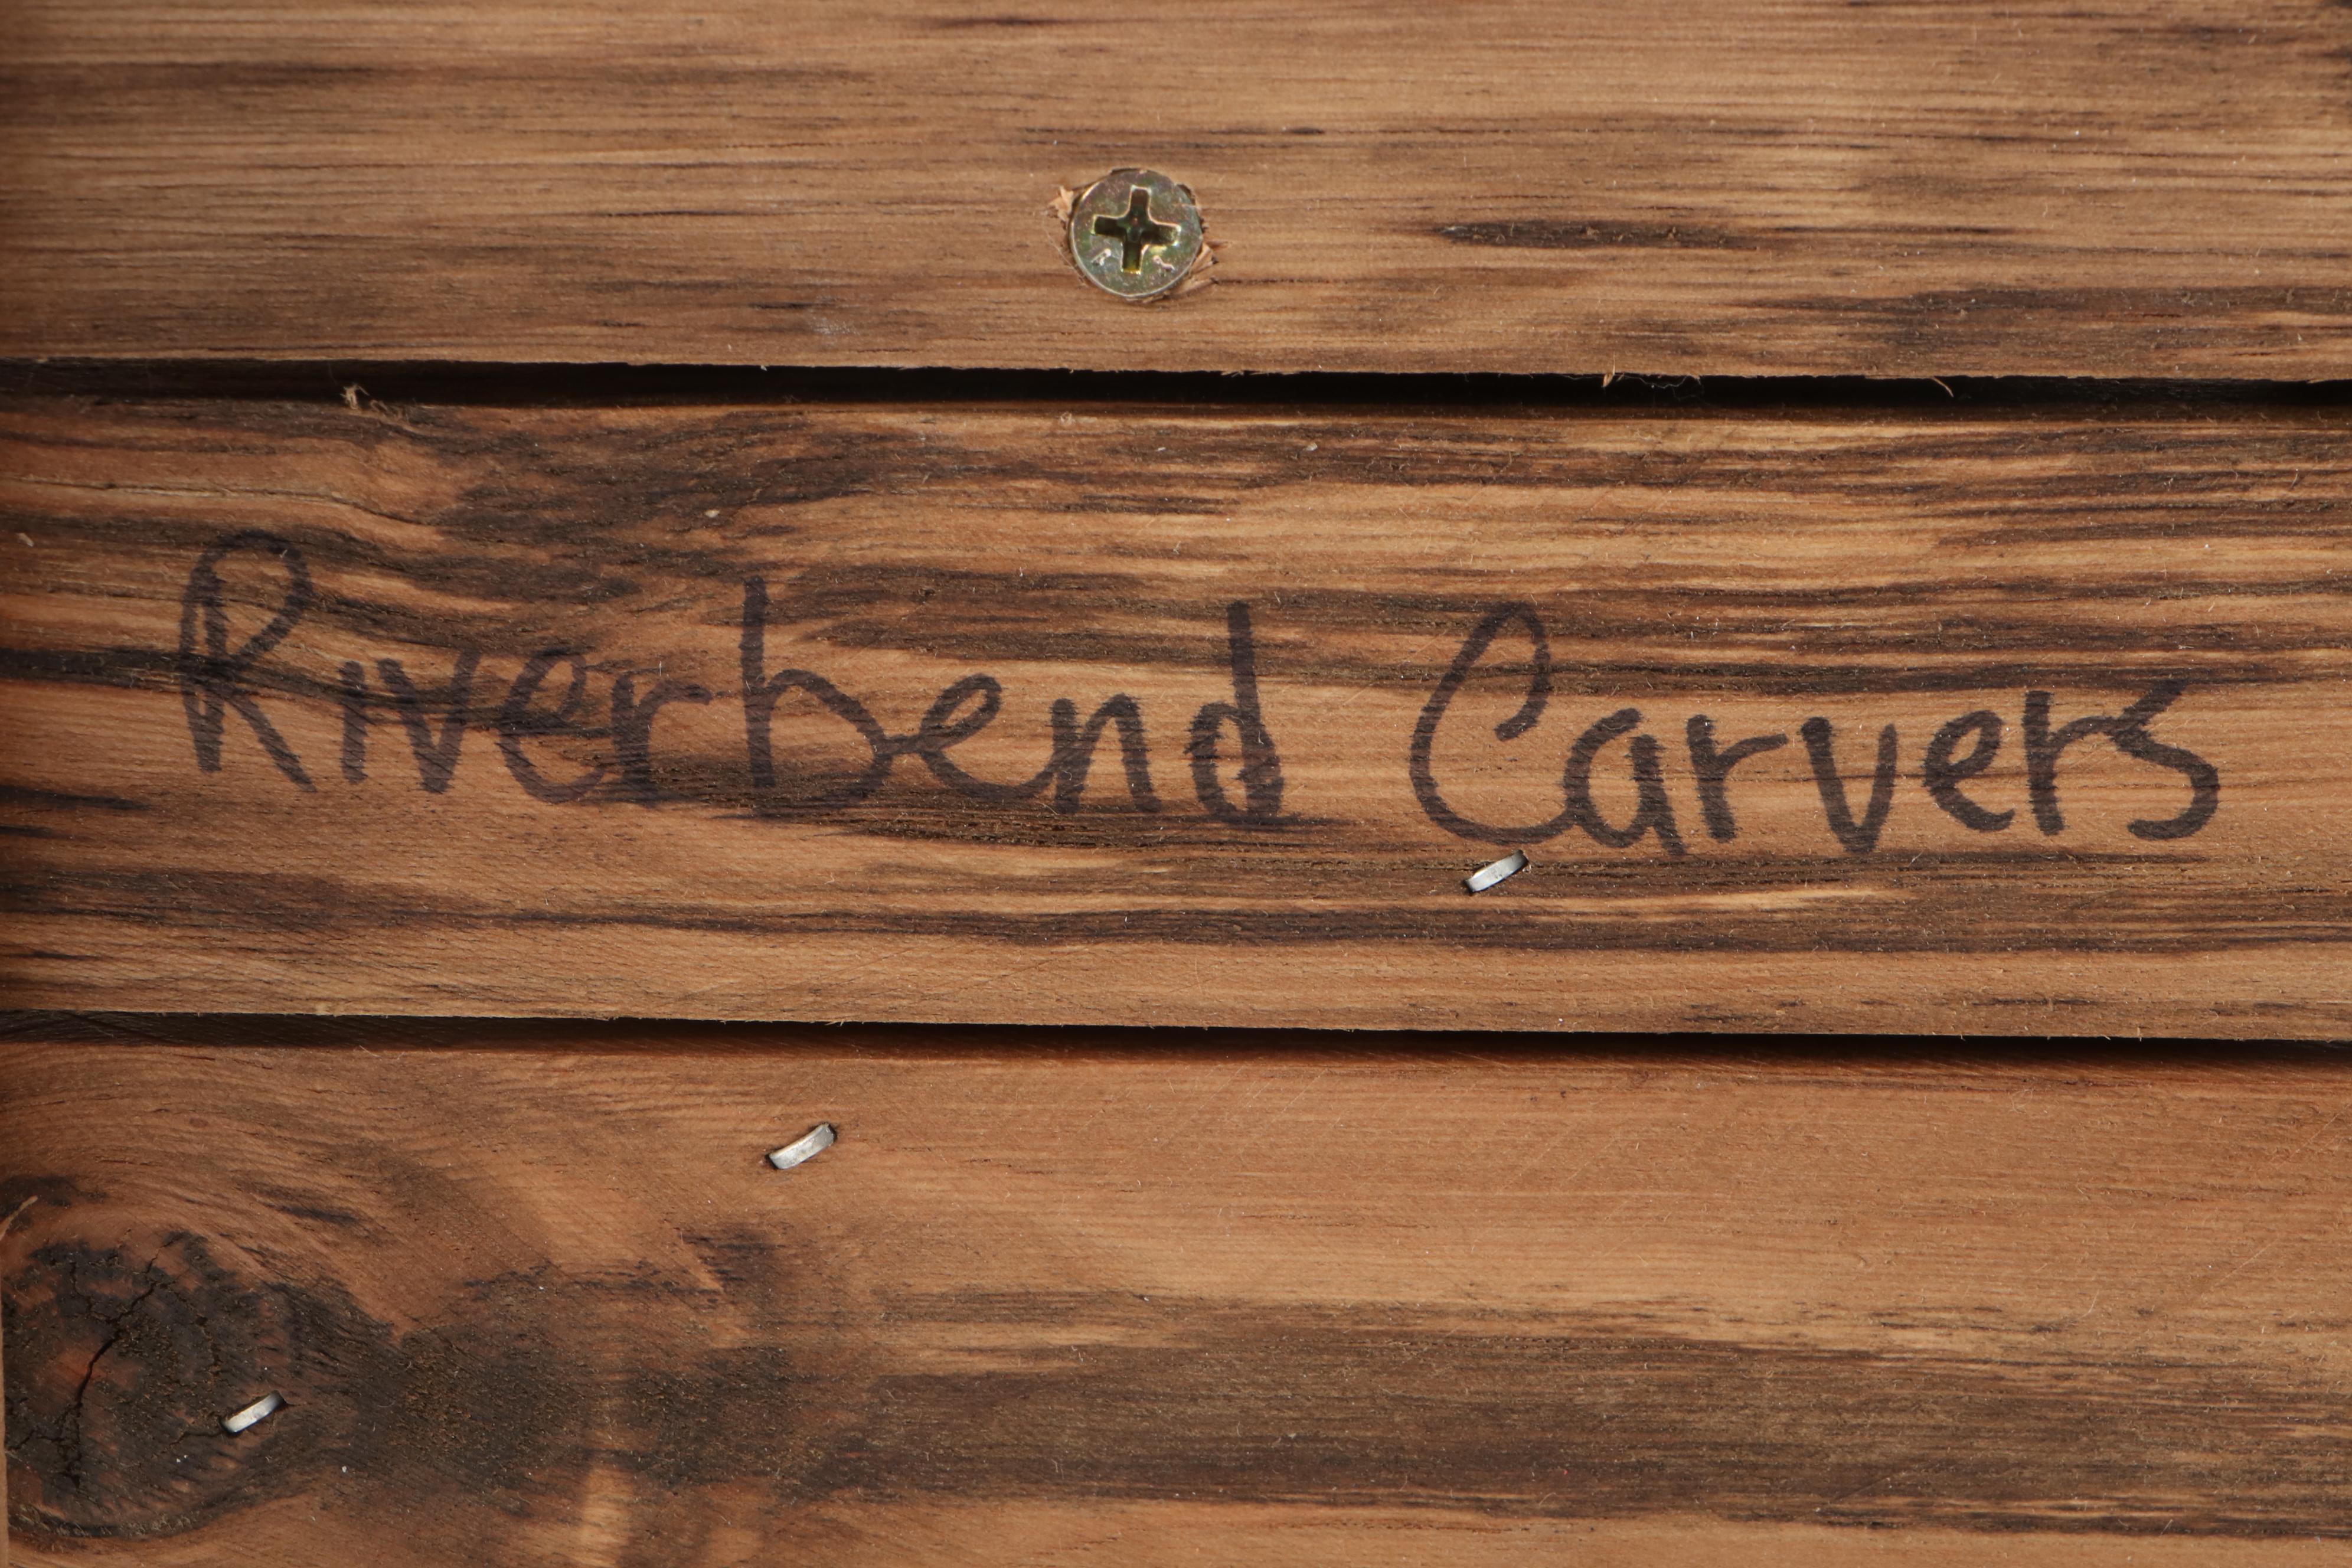 Riverbend Carvers